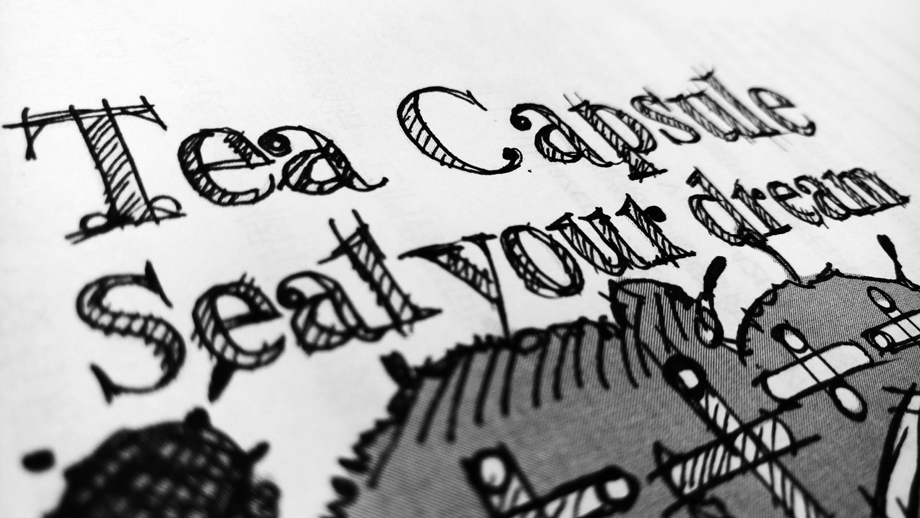 Tea Capsule
Seal your dream